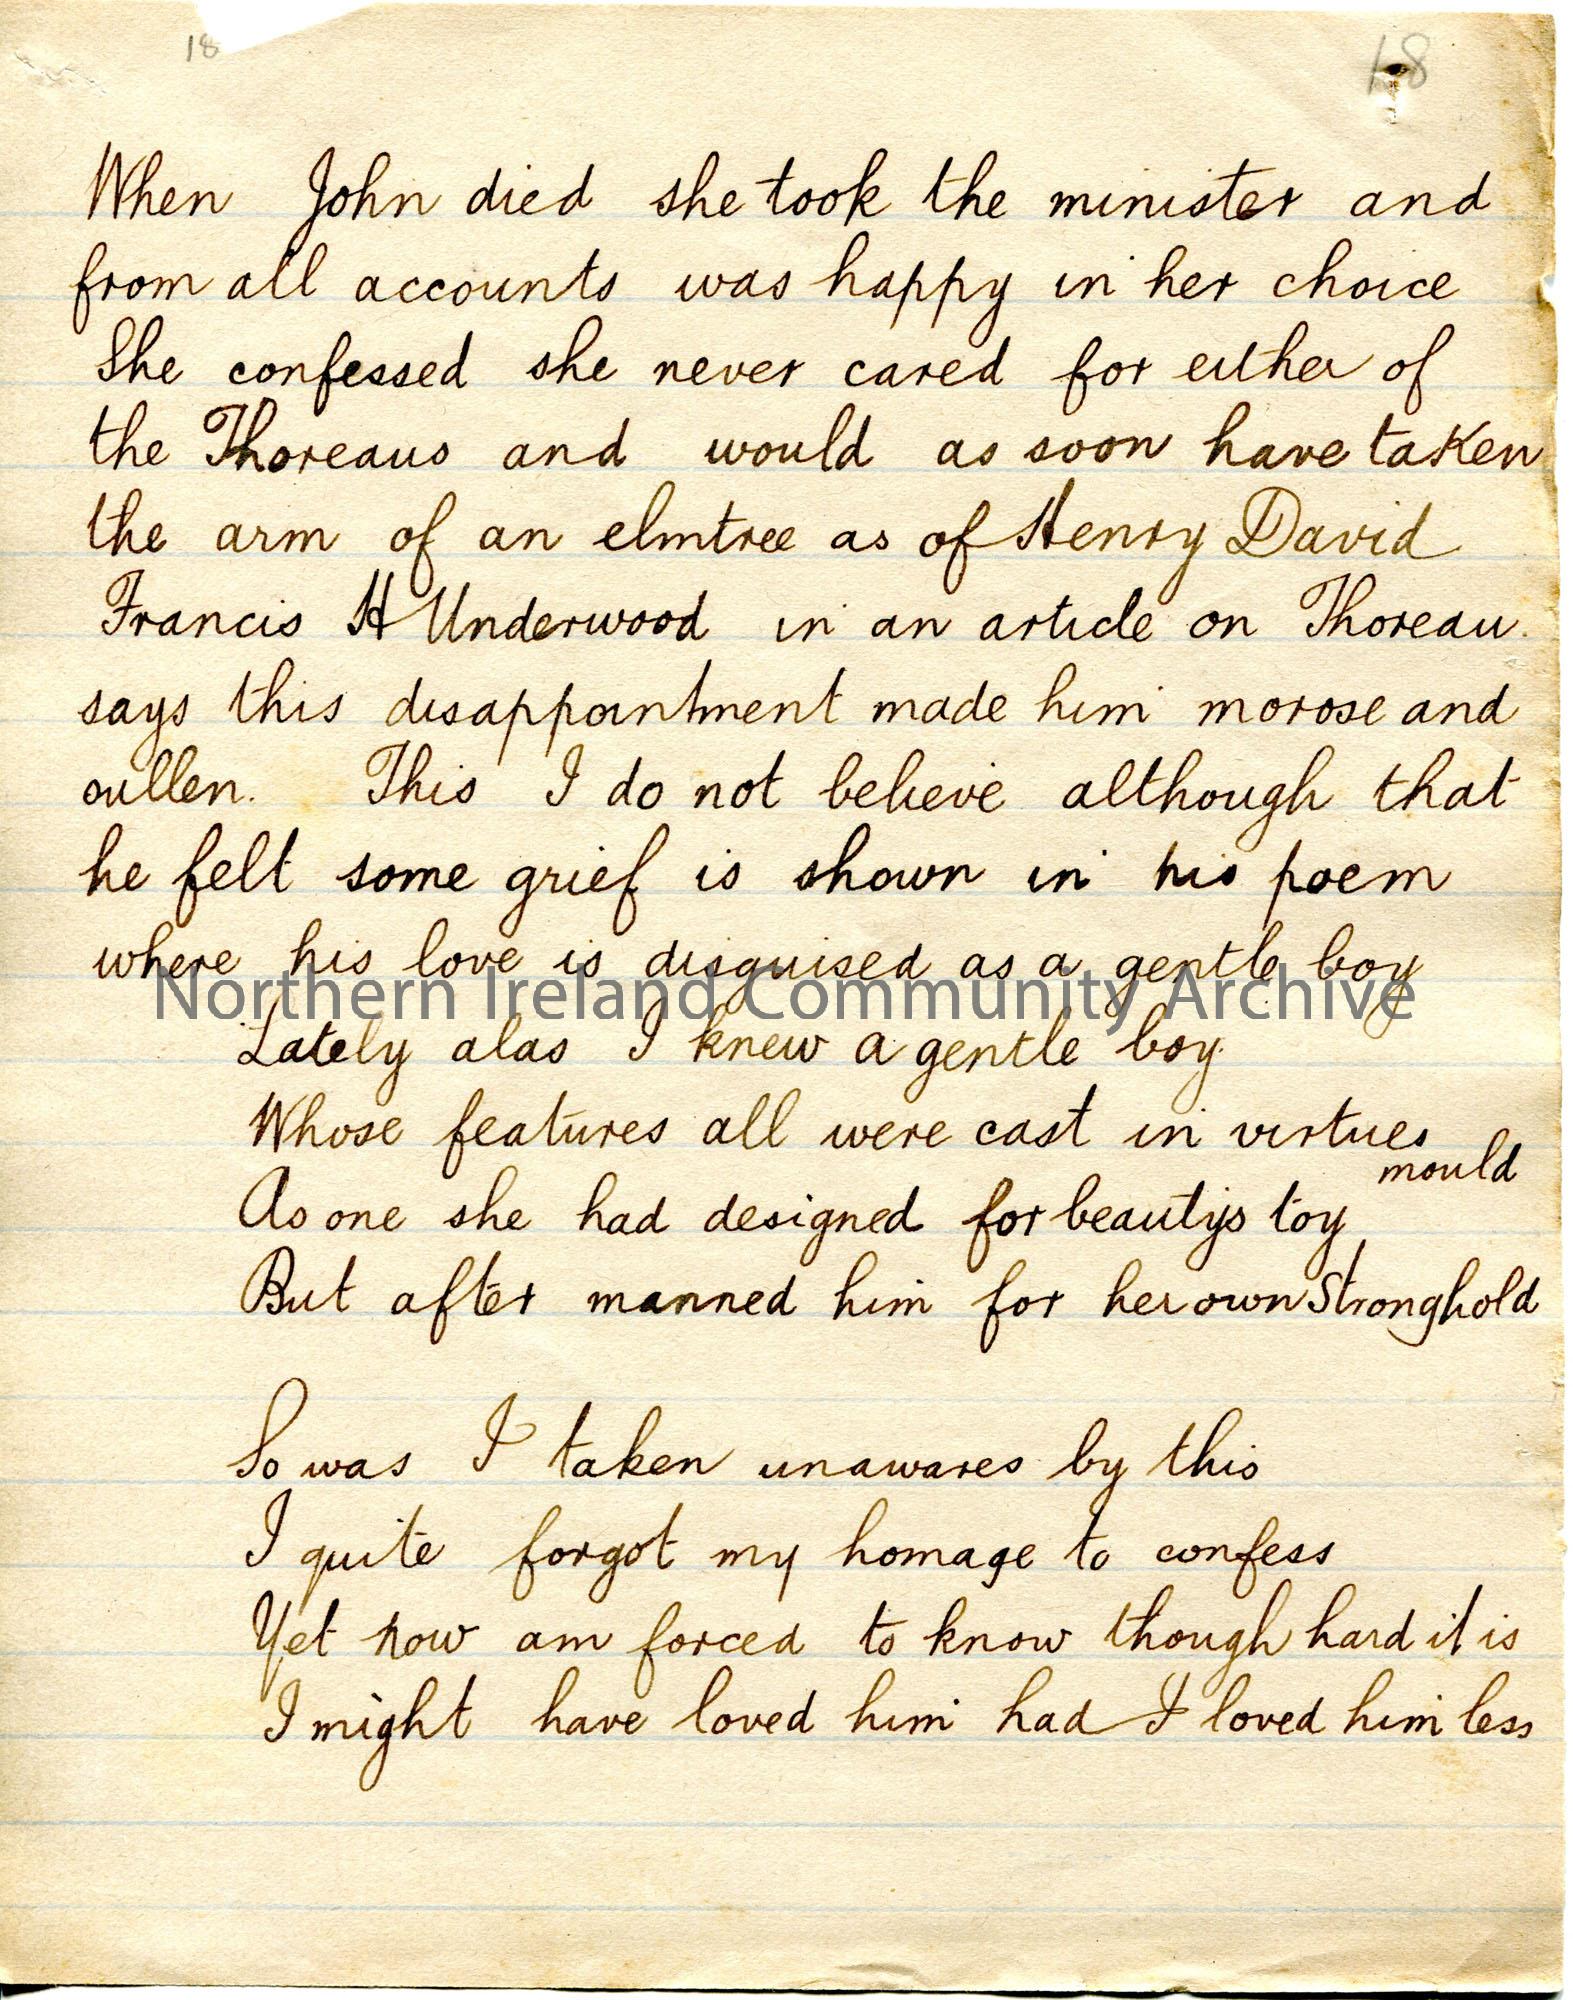 18
18
When John died she took the minister and
from all accounts was happy in her choice
She confessed she never cared for either of
the Thoreaus and would as soon have taken
the arm of an elmtree as of Henry David
Francis H Underwood in an article on Thoreau.
says this disappointment made him morose and
sullen. This I do not believe although that
he felt some grief is shown in his poem
where his love is disguised as a gentle boy
Northern Ireland Community Archive
Lately alas I knew a gentle boy.
Whose features all were cast in virtues
mould
As one she had designed for beautys toy
But after manned him for her own Stronghold
So was I taken unawares by this
I quite forgot my homage to confess
Yet now am forced to know though hard it is
I might have loved him had I loved him less